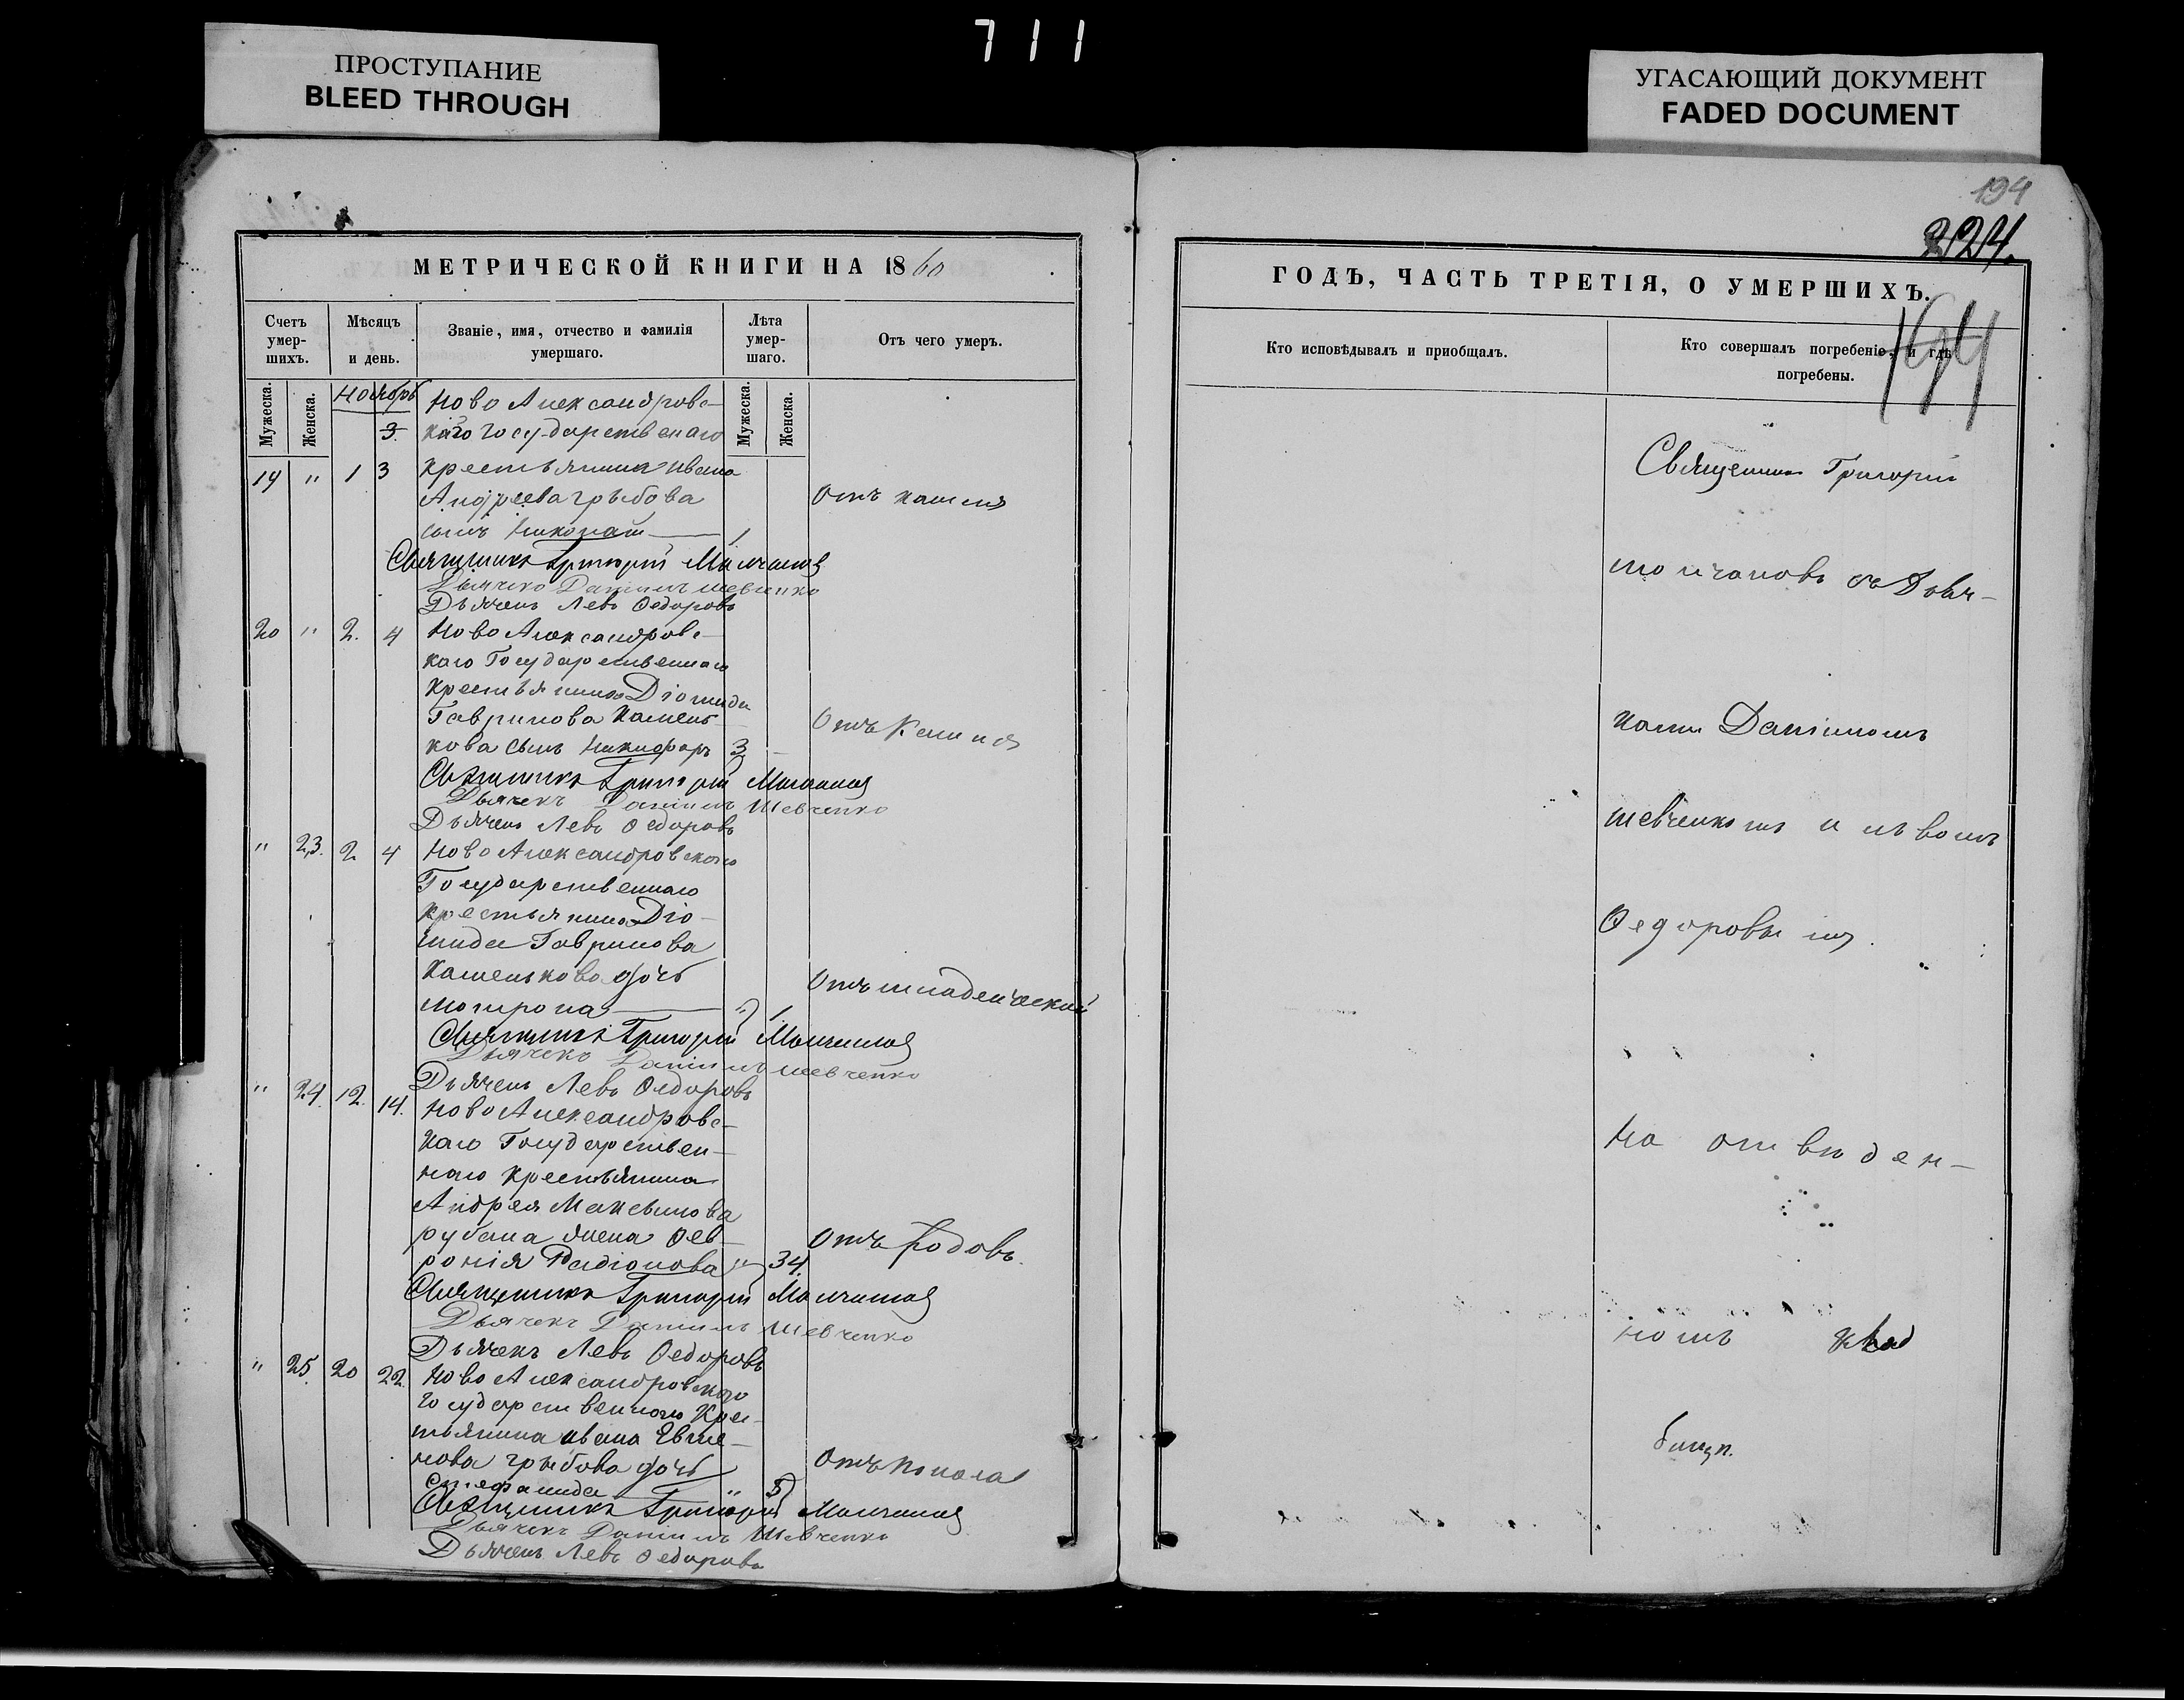 711
ПРОСТУПАНИЕ
BLEED THROUGH
УГАСАЮЩИЙ ДОКУМЕНТ
FADED DOCUMENT
194
224.
194
МЕТРИЧЕСКОЙ КНИГИ НА 1860
Счетъ умер-шихъ.
Мужеска.
Женска.
Мѣсяцъ и день.
Званіе, имя, отчество и фамилія умершаго.
Лѣта умер-шаго.
Мужеска.
Женска.
Отъ чего умеръ.
Ноябрь
Ново Александровс-
3. каго государственаго
19 " 1 3 крестьянина Ивана
Андреева грыбова
Отъ кашля
сынъ Николай — 1
Священникъ Григорій Молчанов
Дьячекъ Даніилъ Шевченко
Дьячекъ Левъ Ѳедоровъ
20 " 2. 4 Ново Александровс-
каго Государственнаго
крестьянина Діомида
Гаврилова Камень-
Отъ Кашля
кова сынъ Никифоръ 3 -
Священникъ Григорій Молчанов
Дьячекъ Даніилъ Шевченко
Дьячекъ Левъ Ѳедоровъ
" 23. 2 4 Ново Александровскаго
Государственнаго
Крестьянина Діо-
мида Гаврилова
Каменькова дочь
Отъ младенческой
Матрона — " 1
Священникъ Григорій Молчанов
Дьячекъ Даніилъ Шевченко
Дьячекъ Левъ Ѳедоровъ
" 24. 12. 14. Ново Александровс-
каго Государствен-
наго Крестьянина
Андрея Максимова
рубана жена Фев-
Отъ родовъ.
ронія Радіонова " 34
Священникъ Григорій Молчанов
Дьячекъ Даніилъ Шевченко
Дьячекъ Левъ Ѳедоровъ
" 25. 20 22. Ново Александровскаго
государственнаго Крес-
тьянина Ивана Евме-
нова грыбова дочь
Стефанида " 5
Священникъ Григорій Молчанов
Дьячекъ Даніилъ Шевченко
Дьячекъ Левъ Ѳедоровъ
ГОДЪ, ЧАСТЬ ТРЕТІЯ, О УМЕРШИХЪ.
Кто исповѣдывалъ и пріобщалъ.
Кто совершалъ погребеніе, и гдѣ погребены.
Священникъ Григорій
Молчановъ съ Дьяч-
ками Даніиломъ
Шевченкомъ и Львомъ
Ѳедоровымъ.
На отведен-
номъ клад
бищѣ.